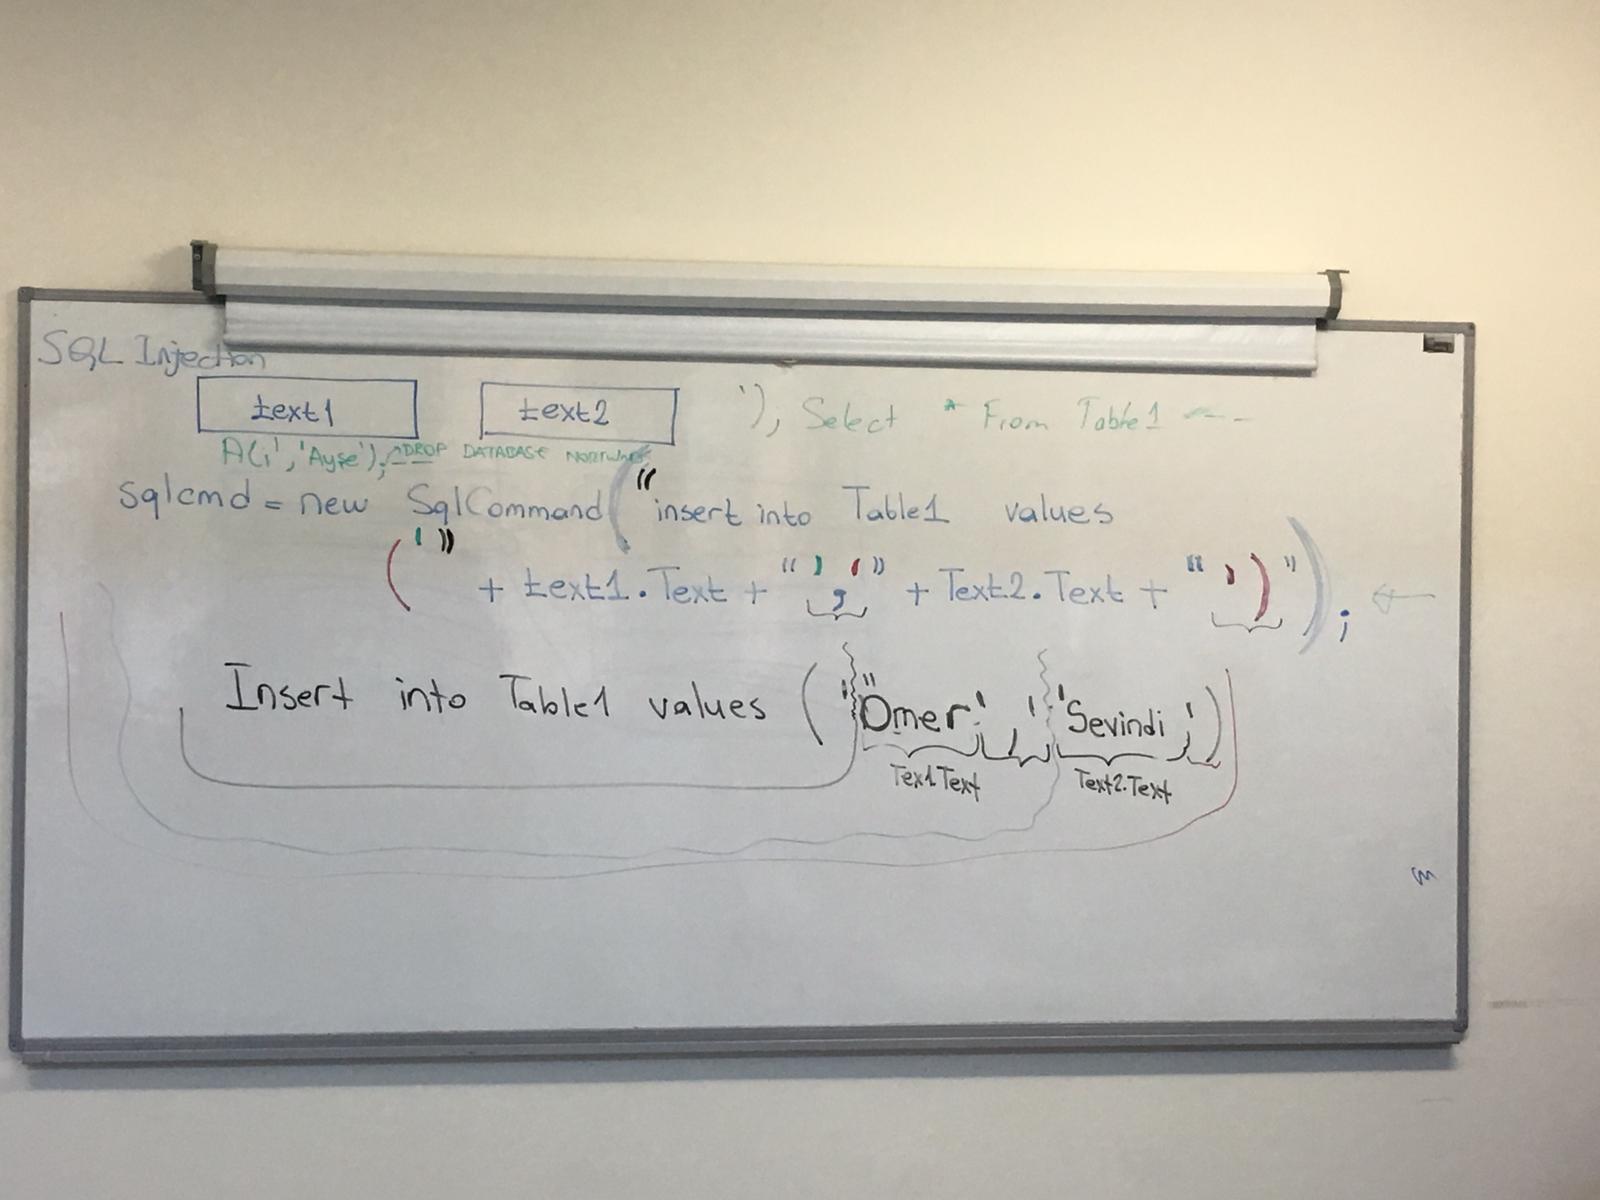 SQL Injection
text1 text2 '); Select * From Table1 <--
A(i','Ayşe'); DROP DATABASE
sqlcmd = new SqlCommand("insert into Table1 values
('" + text1.Text + "','" + Text2.Text + "')");
Insert into Table1 values ('"Ömer' , 'Sevindi')
Tex1.Text Text2.Text